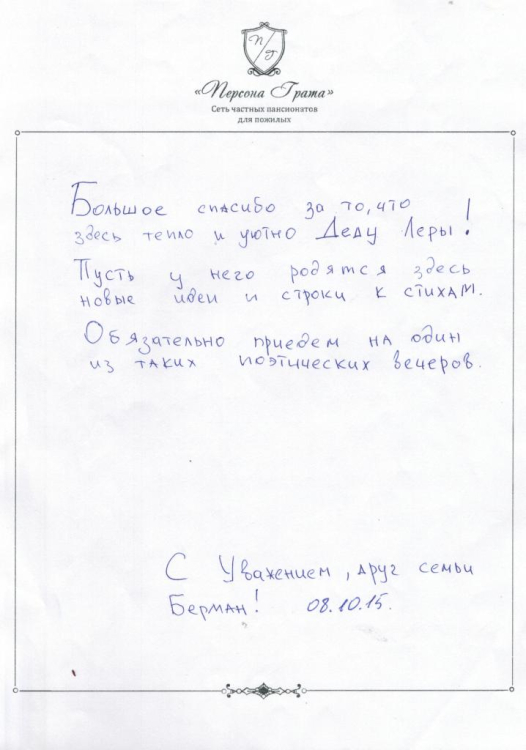 П
Г
«Персона Грата»
Сеть частных пансионатов
для пожилых
Большое спасибо за то, что
здесь тепло и уютно Деду Леры!
Пусть у него родятся здесь
новые идеи и строки к стихам.
Обязательно приедем на один
из таких поэтических вечеров.
С Уважением, друг семьи
Берман! 08.10.15.